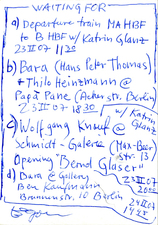 WAITING FOR
a) Departure train MA HBF
to B HBF w/ Katrin Glanz
23 III 07 11 30
b) Bara (Hans Peter Thomas)
+ Thilo Heinzmann @
Papa Pane (Ackerstr. Berlin)
23 III 07 18 30 w/ Katrin Glanz
c) Wolfgang Knauf @
Schmidt-Galerie (Max-Beer-str. 13)
Opening "Bernd Glaser"
23 III 07 20 00
d) Bara @ Gallery
Ben Kaufmann
Brunnenstr. 10 Berlin
24 III 07
14 25